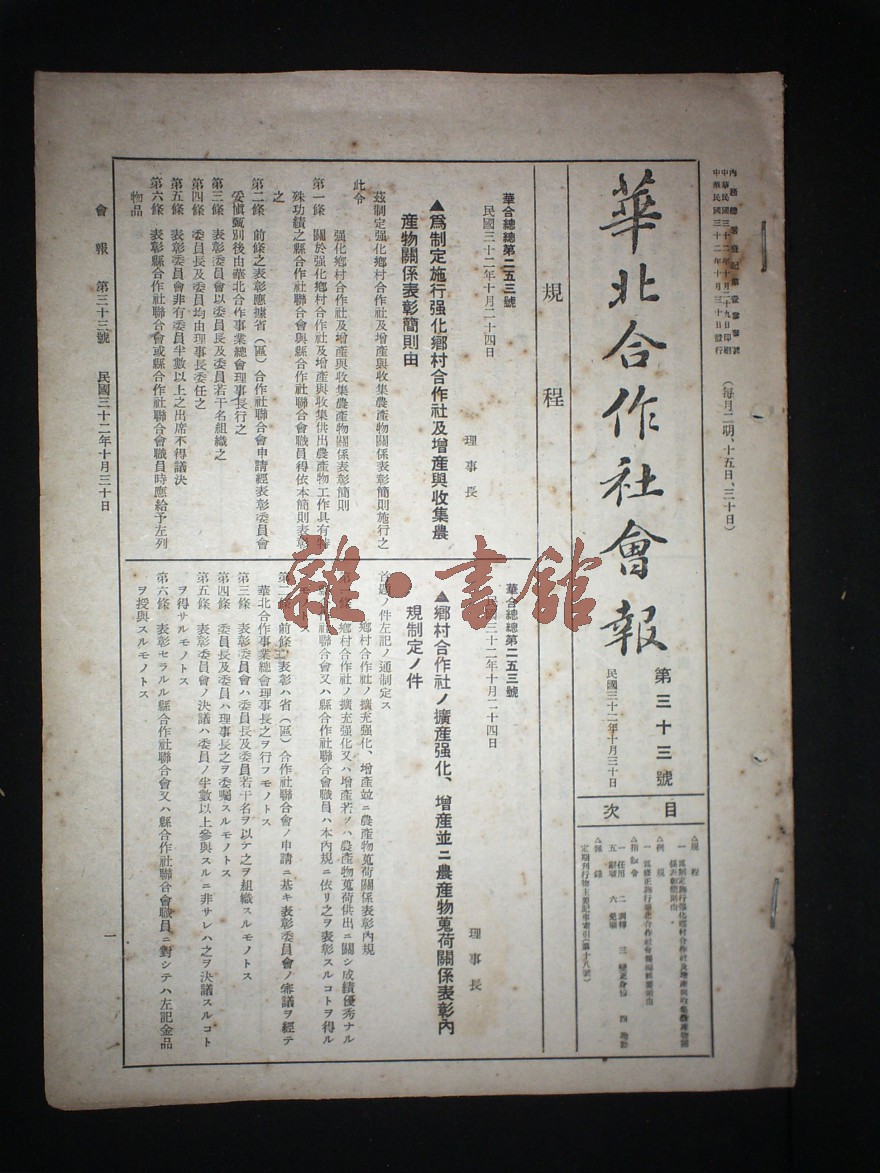 內務總署登記第壹參參號
中華民國三十二年十月二十九日印刷
中華民國三十二年十月三十日發行
(每月二明、十五日、三十日)
華北合作社會報
第三十三號
民國三十二年十月三十日
目次
△規程
一 爲制定施行强化鄉村合作社及增產與收集農產物關
係表彰簡則由
△例規
△指叙會
一 任用 二 調轉 三 變更身份 四
五 辭職 六 兇
△雜錄
定期刊行物主要記事索引(第十八號)
規程
華合總總第二五三號
民國三十二年十月二十四日
理事長
▲爲制定施行强化鄉村合作社及增產與收集農
產物關係表彰簡則由
茲制定强化鄉村合作社及增產與收集農產物關係表彰簡則施行之
此令
强化鄉村合作社及增產與收集農產物關係表彰簡則
第一條 關於强化鄉村合作社及增產與收集供出農產物工作具有特
殊功績之縣合作社聯合會與縣合作社聯合會職員得依本簡則表彰
之
第二條 前條之表彰應據省(區)合作社聯合會申請經表彰委員會
妥愼甄別後由華北合作事業總會理事長行之
第三條 表彰委員會以委員長及委員若干名組織之
第四條 委員長及委員均由理事長委任之
第五條 表彰委員會非有委員半數以上之出席不得議決
第六條 表彰縣合作社聯合會或縣合作社聯合會職員時應給予左列
物品
華合總總第二五三號
民國三十二年十月二十四日
理事長
▲鄉村合作社ノ擴產强化、增產並ニ農產物蒐荷關係表彰內
規制定ノ件
首題ノ件左記ノ通制定ス
鄉村合作社ノ擴充强化、增產並ニ農產物蒐荷關係表彰內規
第一條 鄉村合作社ノ擴充强化又ハ增產若クハ農產物蒐荷供出ニ關シ成績優秀ナル
縣合作社聯合會又ハ縣合作社聯合會職員ハ本內規ニ依リ之ヲ表彰スルコトヲ得ル
モノトス
第二條 前條ノ表彰ハ省(區)合作社聯合會ノ申請ニ基キ表彰委員會ノ審議ヲ經テ
華北合作事業總會理事長之ヲ行フモノトス
第三條 表彰委員會ハ委員長及委員若干名ヲ以テ之ヲ組織スルモノトス
第四條 委員長及委員ハ理事長之ヲ委囑スルモノトス
第五條 表彰委員會ノ決議ハ委員ノ半數以上參與スルニ非サレハ之ヲ決議スルコト
ヲ得サルモノトス
第六條 表彰セラルル縣合作社聯合會又ハ縣合作社聯合會職員ニ對シテハ左記金品
ヲ授與スルモノトス
會報 第三十三號 民國三十二年十月三十日
一
雜·書館